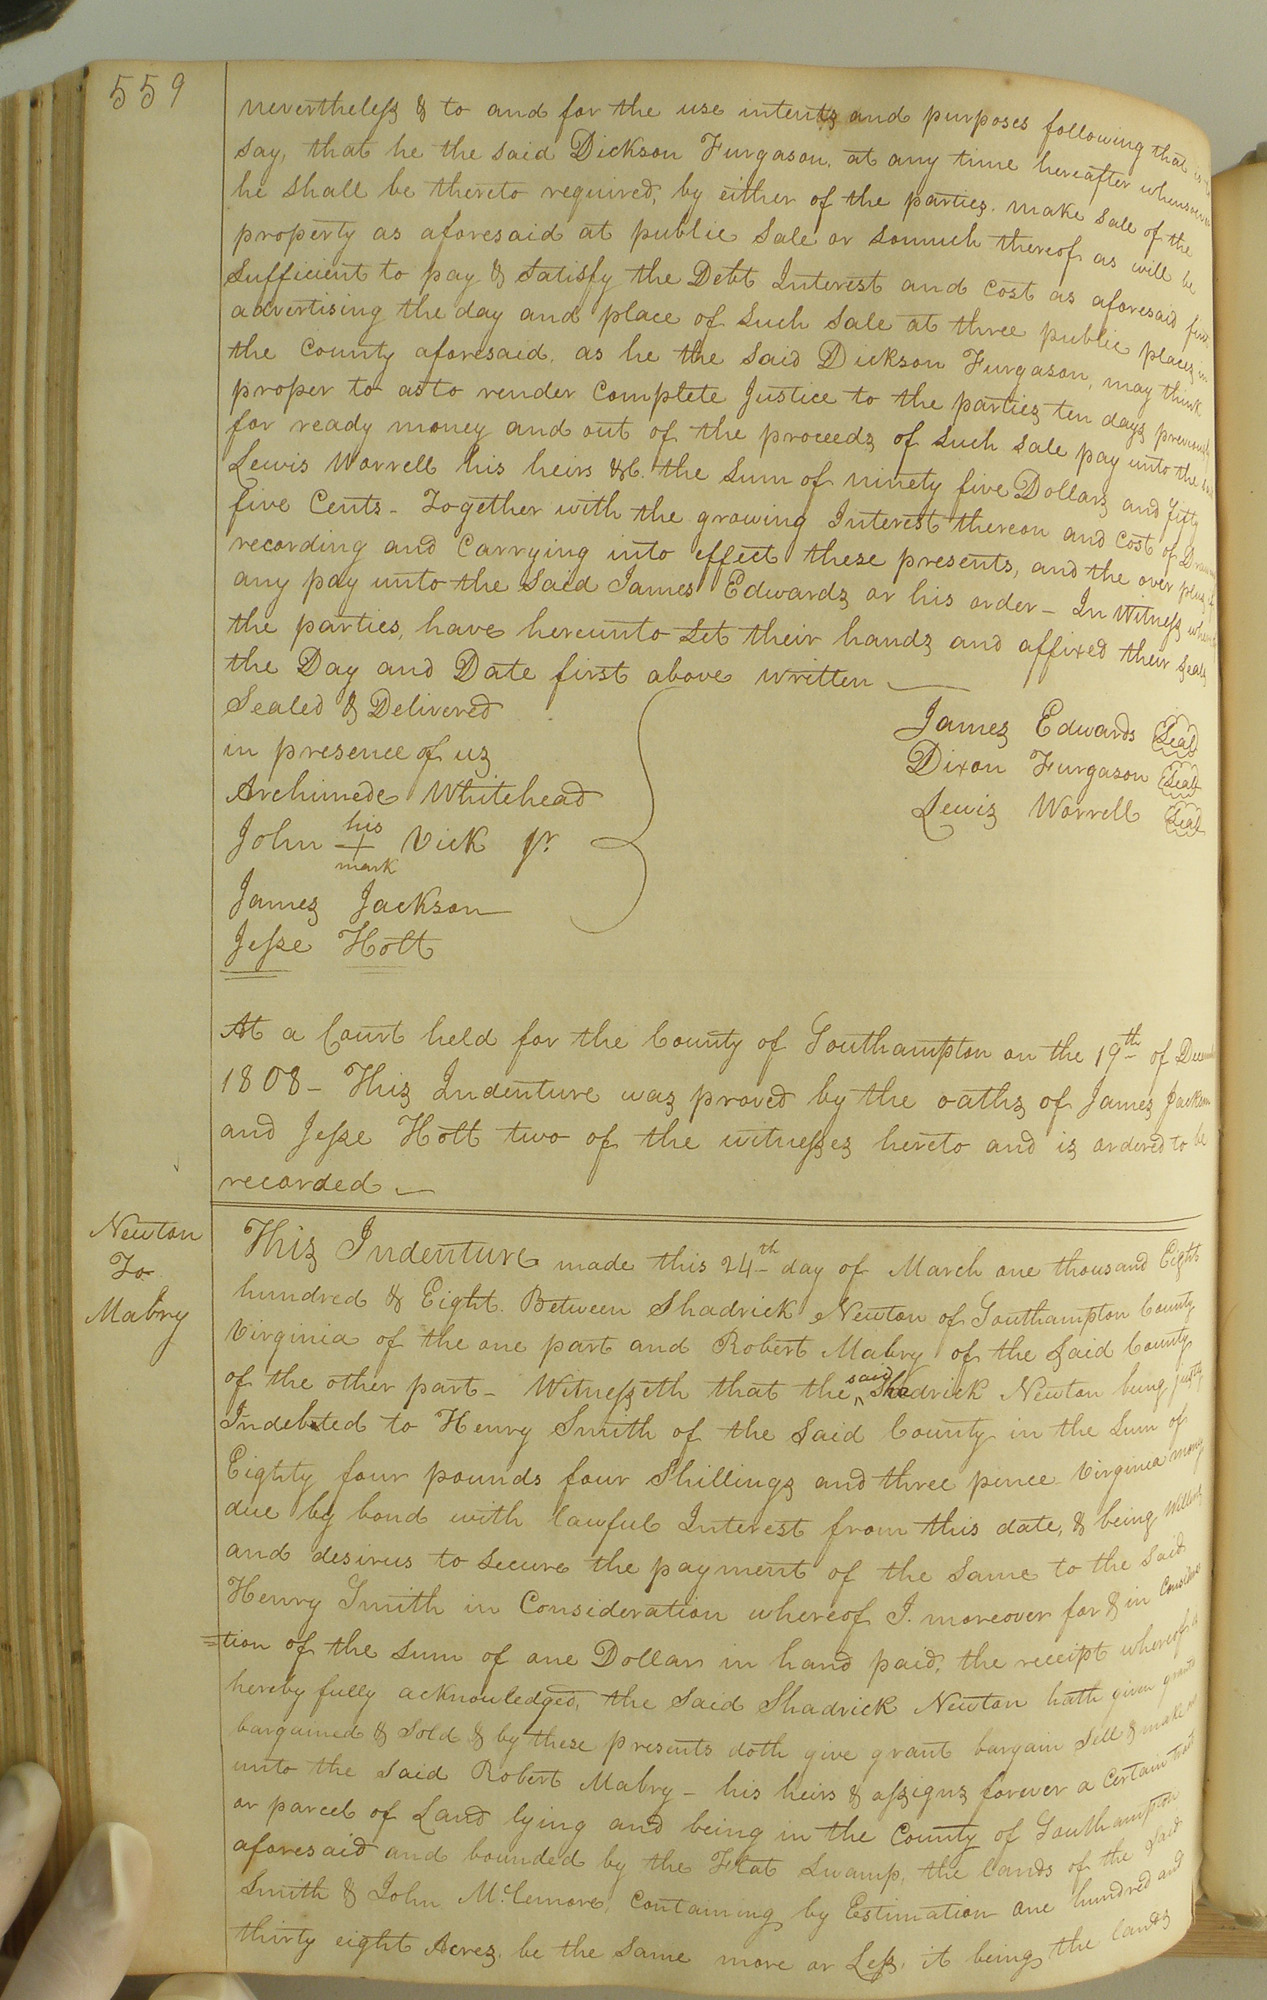 559
nevertheless & to and for the use intents and purposes following that is to
say, that he the said Dickson Furgason, at any time hereafter whensoever
he shall be thereto required, by either of the parties. make sale of the
property as aforesaid at public sale or somuch thereof as will be
sufficient to pay & satisfy the Debt Interest and cost as aforesaid first
advertising the day and place of such sale at three public places in
the County aforesaid, as he the said Dickson Furgason, may think
proper to asto render Complete Justice to the parties ten days previously
for ready money and out of the proceeds of such sale pay unto the said
Lewis Worrell his heirs &c. the sum of ninety five Dollars and fifty
five Cents - Together with the growing Interest thereon and cost of Drawing
recording and Carrying into effect these presents, and the over plus if
any pay unto the said James Edwards or his order - In Witness whereof
the parties, have hereunto set their hands and affixed their seals
the Day and Date first above written
Sealed & Delivered
in presence of us
Archimede Whitehead
John his + mark Vick Jr.
James Jackson
Jesse Holt
James Edwards Seal
Dixon Furgason Seal
Lewis Worrell Seal
At a Court held for the County of Southampton on the 19th of December
1808 - This Indenture was proved by the oaths of James Jackson
and Jesse Holt two of the witnesses hereto and is ordered to be
recorded -
Newton
To
Mabry
This Indenture made this 24th day of March one thousand Eight
hundred & Eight. Between Shadrick Newton of Southampton County
Virginia of the one part and Robert Mabry of the said County
of the other part - Witnesseth that the said Shadrick Newton being justly
Indebted to Henry Smith of the said County in the sum of
Eighty four pounds four Shillings and three pince Virginia money
due by bond with lawful Interest from this date, & being willing
and desirus to secure the payment of the same to the said
Henry Smith in Consideration whereof I. moreover for & in Considera
=tion of the sum of one Dollar in hand paid, the receipt whereof is
hereby fully acknowledged, the said Shadrick Newton hath given granted
bargained & sold & by these presents doth give grant bargain sell & make over
unto the said Robert Mabry - his heirs & assigns forever a certain tract
or parcel of Land lying and being in the County of Southampton
aforesaid and bounded by the Flat Swamp, the lands of the said
Smith & John McLemore, Containing by Estimation one hundred and
thirty eight Acres, be the same more or Less, it being the lands